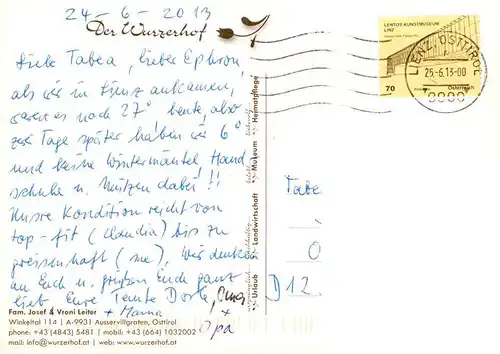 24-6-2013
Der Wurzerhof
Liebe Tabea, lieber Ephron,
als wir in Linz ankamen,
waren es noch 27° heute, aber
zwei Tage später haben wir 6°
und keine Wintermäntel Hand
schuhe u. Mützen dabei!!
Unsre Kondition reicht von
top-fit (Claudia) bis zu
greisenhaft (me). Wir denken
an Euch u. grüßen Euch ganz
lieb Eure Tante Dorle, Oma
+ Mama + Opa
Fam. Josef & Vroni Leiter
Winkeltal 114 | A-9931 Ausservillgraten, Osttirol
phone: +43 (4843) 5481 | mobil: +43 (664) 1032002
mail: info@wurzerhof.at | web: www.wurzerhof.at
Urlaub
Landwirtschaft
Museum
Heimatpflege
LENTOS KUNSTMUSEUM
LINZ
70
Österreich
LIENZ, OSTTIROL
25.-6.13-00
9900
Tabe
O
D 12